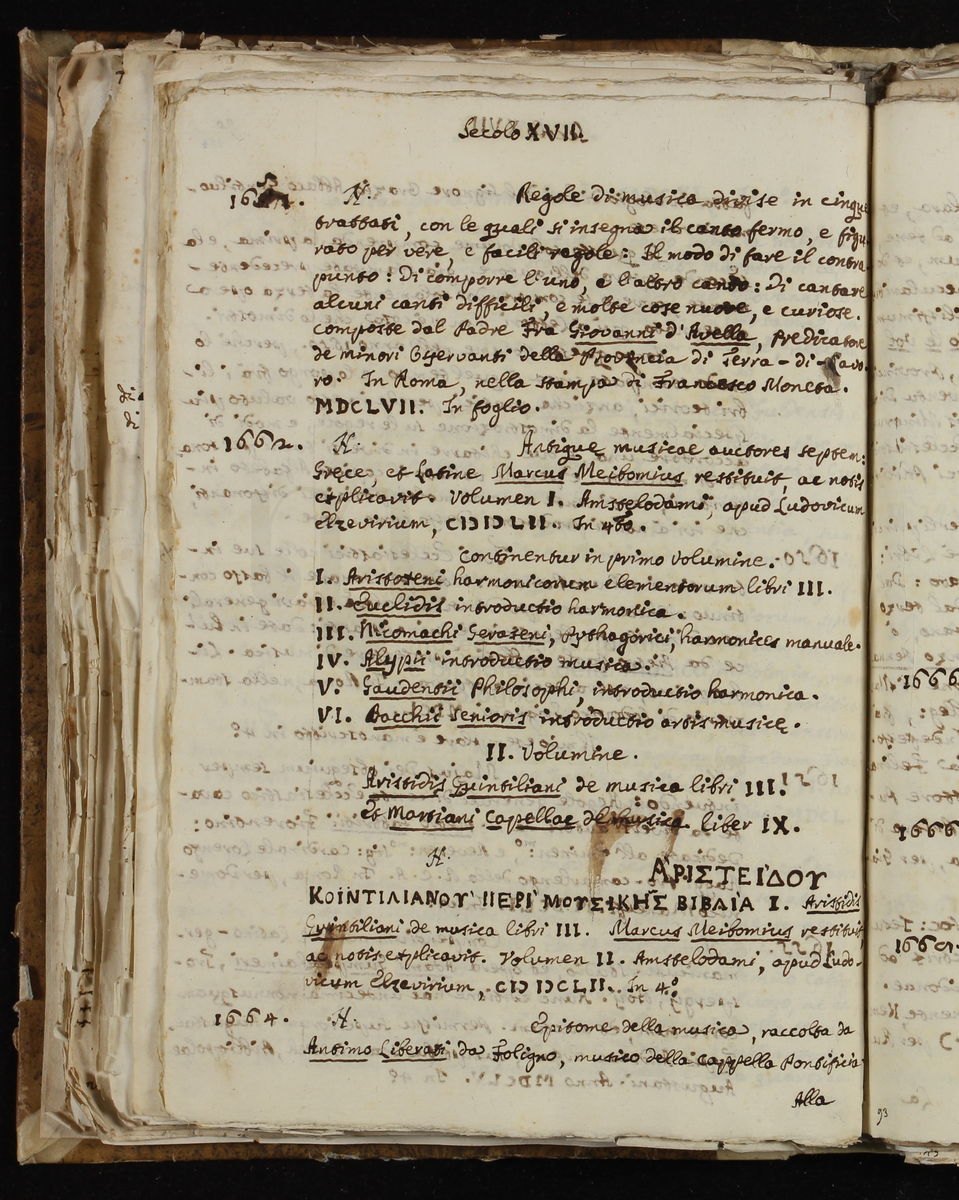 Secolo XVII
N. Regole di musica divise in cinque
trattati, con le quali si insegna il canto fermo, e figu
rato per vere, e facili regole: Il modo di fare il contra
punto: Di comporre l'uno, e l'altro canto: Di cantare
alcuni canti difficili, e molte cose nuove, e curiose.
composte dal Padre Fra Giovanni d'Avella, Predicatore
de minori Osservanti della Provincia di Terra-di-Lavo
ro. In Roma, nella stampa di Francesco Moneta.
MDCLVII. In foglio.
di
di
1662. N. Antiquę musicae auctores septem:
Gręce, et Latine Marcus Meibomius restituit, ac notis
explicavit. Volumen I. Amstelodami, apud Ludovicum
Elzevirium, CIƆIƆCLII. In 4to.
Continentur in primo Volumine.
I. Aristoxeni harmonicorum elementorum libri III.
II. Euclidis introductio harmonica.
III. Nicomachi Geraseni, Pythagorici, harmonices manuale.
IV. Alypii introductio musica.
V. Gaudentii Philosophi, introductio harmonica.
VI. Bacchii Senioris introductio artis musicę.
II. Volumine.
Aristidis Quintiliani de musica libri III.
Et Martiani Capellae de musica liber IX.
N. ἈΡΙΣΤΕΙΔΟΥ
ΚΟΪΝΤΙΛΙΑΝΟΥ ΠΕΡῚ ΜΟΥΣΙΚΗ͂Σ ΒΙΒΛΙΑ Ι. Aristidis
Quintiliani de musica libri III. Marcus Meibomius restituit,
ac notis explicavit. Volumen II. Amstelodami, apud Ludo-
vicum Elzevirium, CIƆIƆCLII. In 4.o
1664. N. Epitome della musica, raccolta da
Antimo Liberati da Foligno, musico della Cappella Pontificia
Alla
1666
1666
93